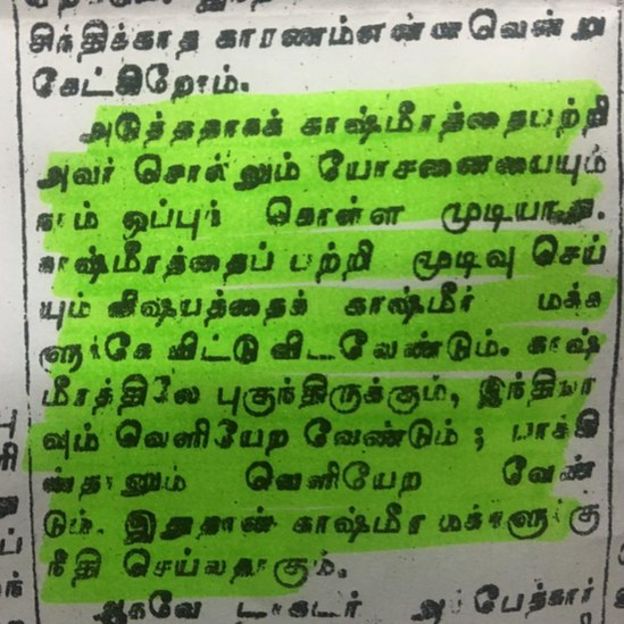 சிந்திக்காத காரணம்என்னவென்று
கேட்கிறோம்.
அடுத்ததாகக் காஷ்மீரத்தைபற்றி
அவர் சொல்னும் யோசனையையும்
நாம் ஒப்புக் கொள்ள முடியாது.
காஷ்மீரத்தைப் பற்றி முடிவு செய்
யும் விஷயத்தைக் காஷ்மீர் மக்க
ளுக்கே விட்டுவிடவேண்டும். காஷ்
மீரத்திலே புகுந்திருக்கும், இந்தியா
வும் வெளியேற வேண்டும் ; பாக்கி
ஸ்தானும் வெளியேற வேண்
டும். இதுதான் காஷ்மீர மக்களுக்கு
நீதி செய்வதாகும்.
ஆகவே டாகடர் அம்பேத்கார்